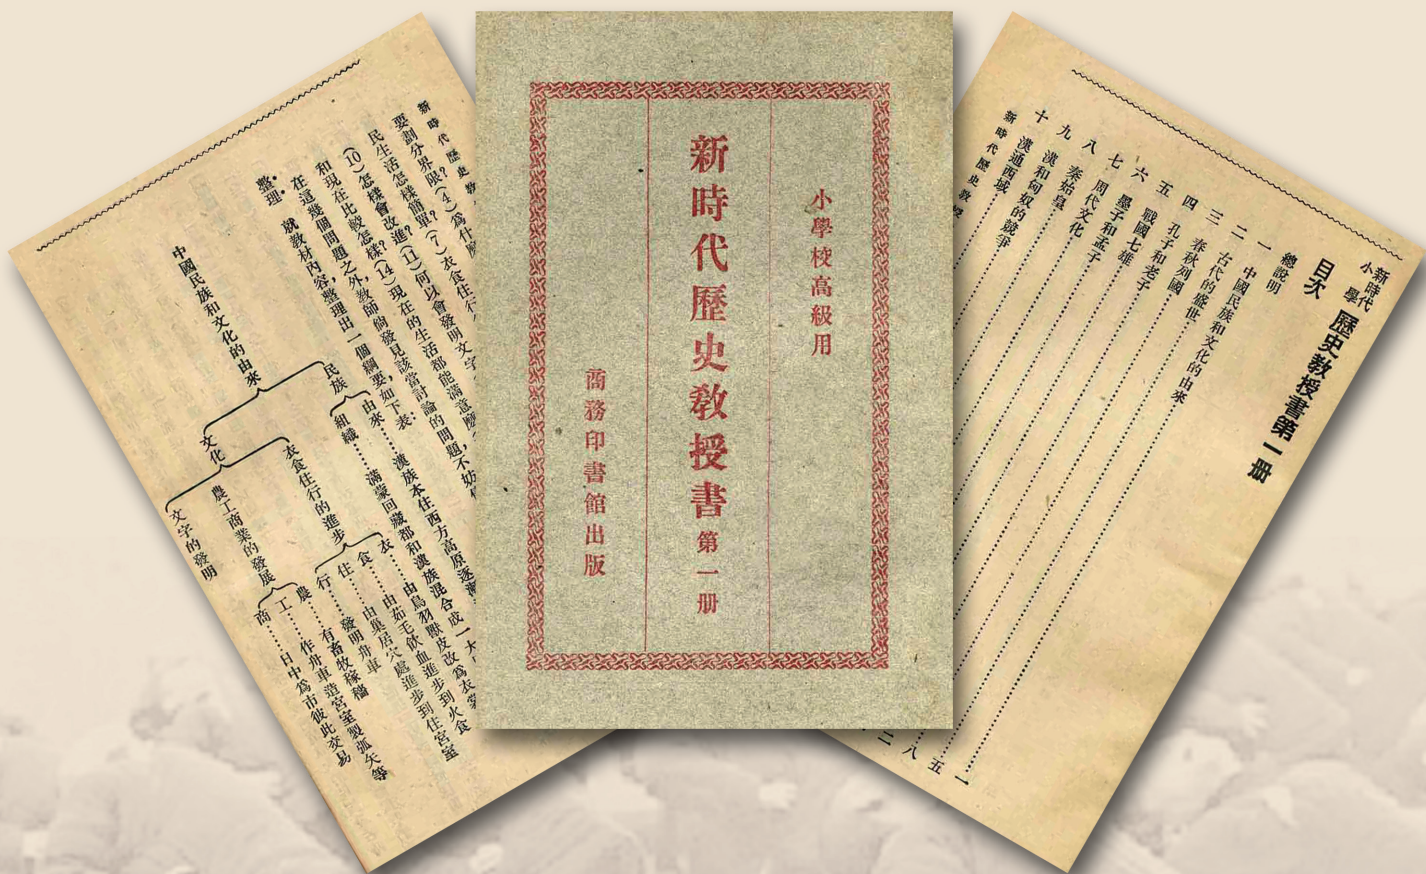 新時代
小學
歷史教授書第一册
目次
總說明
一 中國民族和文化的由來 一
二 古代的盛世 五
三 春秋列國 八
四 孔子和老子
五 戰國七雄
六 墨子和孟子
七 周代文化
八 秦始皇
九 漢和匈奴的競爭
十 漢通西域
新時代歷史教授
小學校高級用
新時代歷史教授書第一册
商務印書館出版
新時代歷史教
要劃分界限?(4)為什麼
民生活怎樣簡單?(7)衣食住行
(10)怎樣會改進?(11)何以會發明文字
和現在比較怎樣?(14)現在的生活都能滿意麼
在這幾個問題之外,教師倘發見該當討論的問題不妨
整理 就教材內容,整理出一個綱要如下表:
中國民族和文化的由來
民族
由來……漢族本住西方高原逐漸
組織……滿蒙回藏都和漢族混合成一大
文化
衣食住行的進步
衣……由鳥羽獸皮改為衣裳
食……由茹毛飲血進步到火食
住……由巢居穴處進步到住宮室
行……發明舟車
農工商業的發展
農……有畜牧稼穡
工……作舟車造宮室製弧矢等
商……日中為市彼此交易
文字的發明